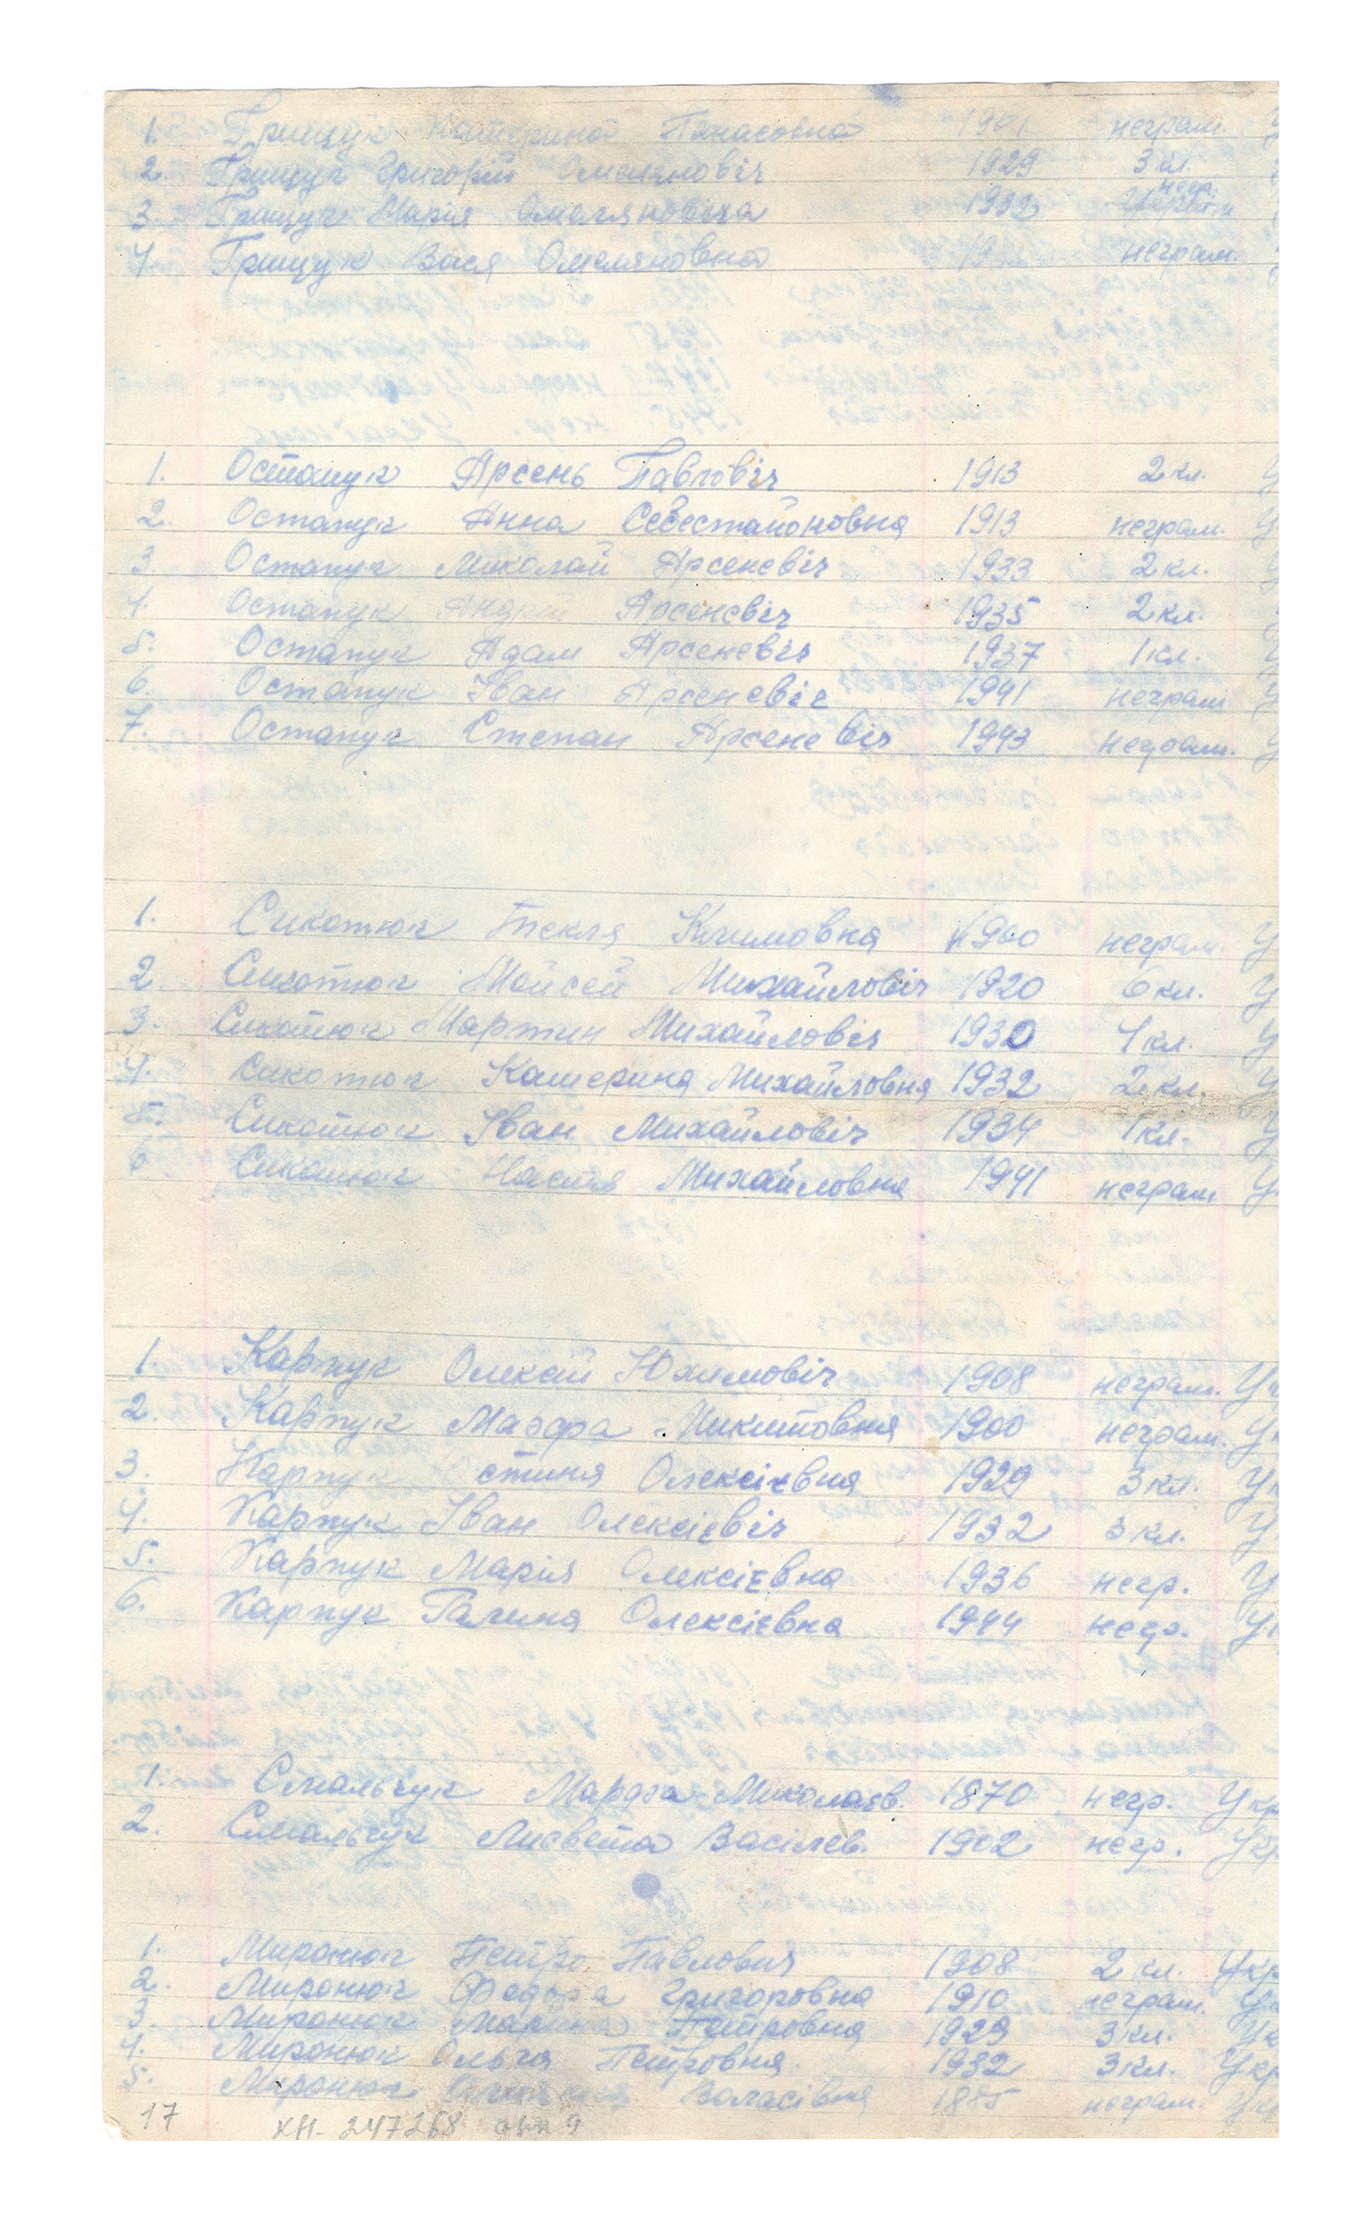 1. Грищук Катерина Панасовна 1901 неграм. У
2. Грищук Григорій Омеляновіч 1929 3 кл.
3. Грищук Марія Омеляновіча 1932 негр.
4. Грищук Вася Омеляновна 19 неграм.
1. Остапук Арсень Павловіч 1913 2 кл. У
2. Остапук Анна Севестайоновна 1913 неграм. У
3. Остапук Миколай Арсеневіч 1933 2 кл. У
4. Остапук Андрій Арсеневіч 1935 2 кл.
5. Остапук Адам Арсеневіч 1937 1 кл. У
6. Остапук Іван Арсеневіч 1941 неграм У
7. Остапук Степан Арсеневіч 1943 неграм. У
1. Сикотюк Текля Климовна 1900 неграм. У
2. Сикотюк Мойсей Михайловіч 1920 6 кл. У
3. Сикотюк Мартин Михайловіч 1930 4 кл. У
4. Сикотюк Катерина Михайловна 1932 2 кл. У
5. Сикотюк Іван Михайловіч 1934 1 кл. У
6 Сикотюк Настя Михайловна 1941 неграм У
1. Карпук Олексій Юхимовіч 1908 неграм. Ук
2. Карпук Мадфра Микитовна 1900 неграм. Ук
3. Карпук стиня Олексієвна 1929 3 кл. Ук
4. Карпук Іван Олексієвіч 1932 3 кл. У
5. Карпук Марія Олексієвна 1936 негр. У
6. Карпук Галина Олексієвна 1944 негр. Ук
1. Смальчук Мардза Миколаєв. 1870 негр. Укр
2. Смальчук Лисвета Васілєв. 1902 негр. Укр
1. Миронюк Петро Павлович 1908 2 кл. Укр
2. Миронюк Федора Григоровна 1910 неграм. Ук
3 Миронюк Марина Петровна 1929 3 кл. Ук
4. Миронюк Ольга Петровна. 1932 3 кл. Укр
5. Миронюк Воласівна 1885 неграм. Укр
17 КН-247268 арк 9